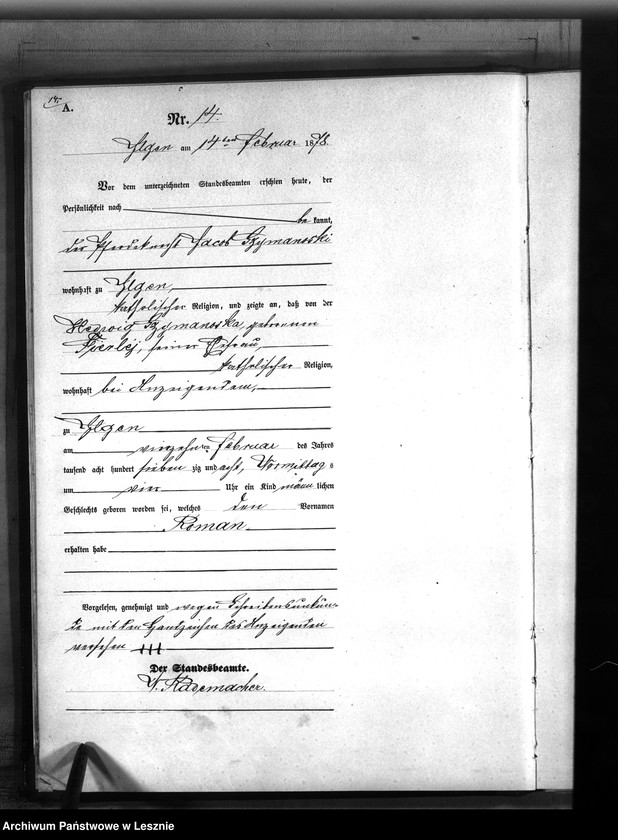 14.
A.
Nr. 14.
Ilgen am 14ten Februar 1878.
Vor dem unterzeichneten Standesbeamten erschien heute, der
Persönlichkeit nach
be kannt,
der Pferdeknecht Jacob Szymanoski
wohnhaft zu Ilgen,
katholischer Religion, und zeigte an, daß von der
Hedwig Szymanoska, geborenen
seiner Ehefrau,
katholischer Religion,
wohnhaft bei Anzeigendem,
zu Ilgen
am vierzehnten Februar des Jahres
tausend acht hundert sieben zig und acht, Vormittag s
um vier Uhr ein Kind männ lichen
Geschlechts geboren worden sei, welches den Vornamen
Roman
erhalten habe
Vorgelesen, genehmigt und wegen Schreibensunkun-
de mit den Handzeichen des Anzeigenden
versehen +++
Der Standesbeamte.
Rademacher.
Archiwum Państwowe w Lesznie